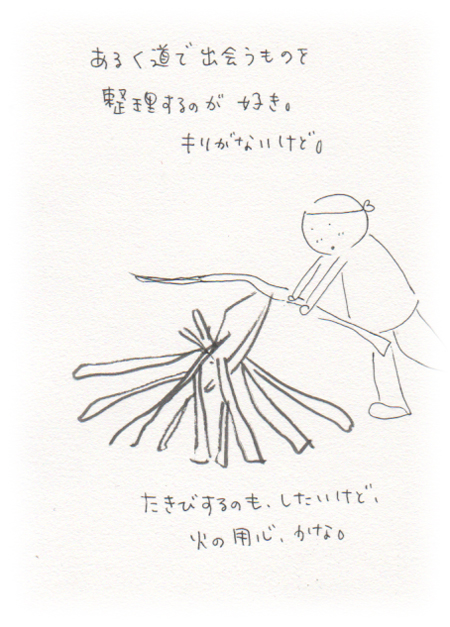 あるく道で出会うものを
整理するのが好き。
キリがないけど。
たきびするのも、したいけど、
火の用心、かな。